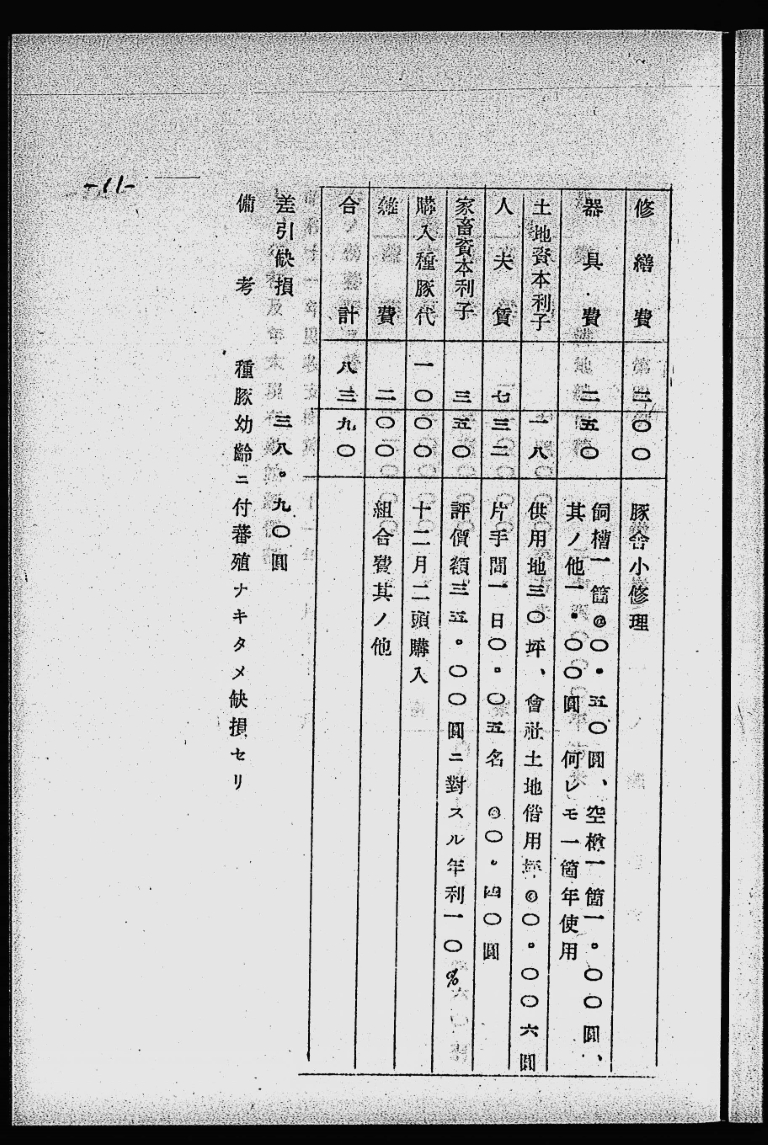 修繕費 二 〇〇 豚舍小修理
器具費 二 五〇 飼槽一箇@〇・五〇圓、空樽一箇一・〇〇圓、
其ノ他一・〇〇圓 何レモ一箇年使用
土地資本利子 一八 供用地三〇坪、會社土地借用坪@〇・〇〇六圓
人夫賃 七 三二 片手間一日〇・〇五名 @〇・四〇圓
家畜資本利子 三 五〇 評價額三五・〇〇圓ニ對スル年利一〇%
購入種豚代 一〇 〇〇 十二月二頭購入
雜費 二 〇〇 組合費其ノ他
合計 八三 九〇
差引缺損 三八・九〇圓
備考 種豚幼齡ニ付蕃殖ナキタメ缺損セリ
-11-